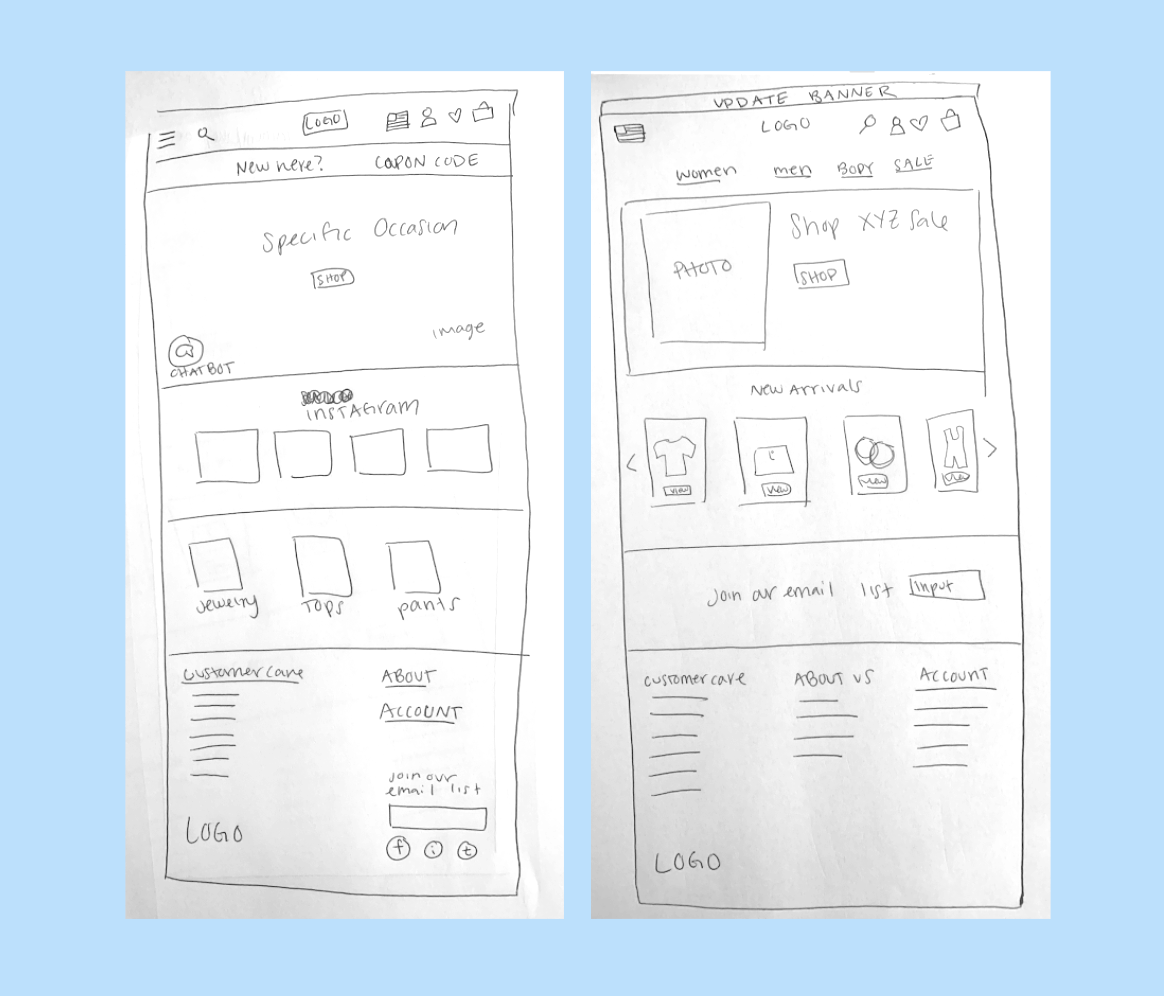 LOGO
New here? COPON CODE
Specific Occasion
SHOP
image
CHATBOT
INSTAGram
Jewelry Tops pants
customer care ABOUT
ACCOUNT
Join our
email list
LOGO
f i t
UPDATE BANNER
LOGO
women men BODY SALE
PHOTO Shop XYZ Sale
SHOP
New Arrivals
< >
view view view view
Join our email list Input
customer care ABOUT US ACCOUNT
LOGO